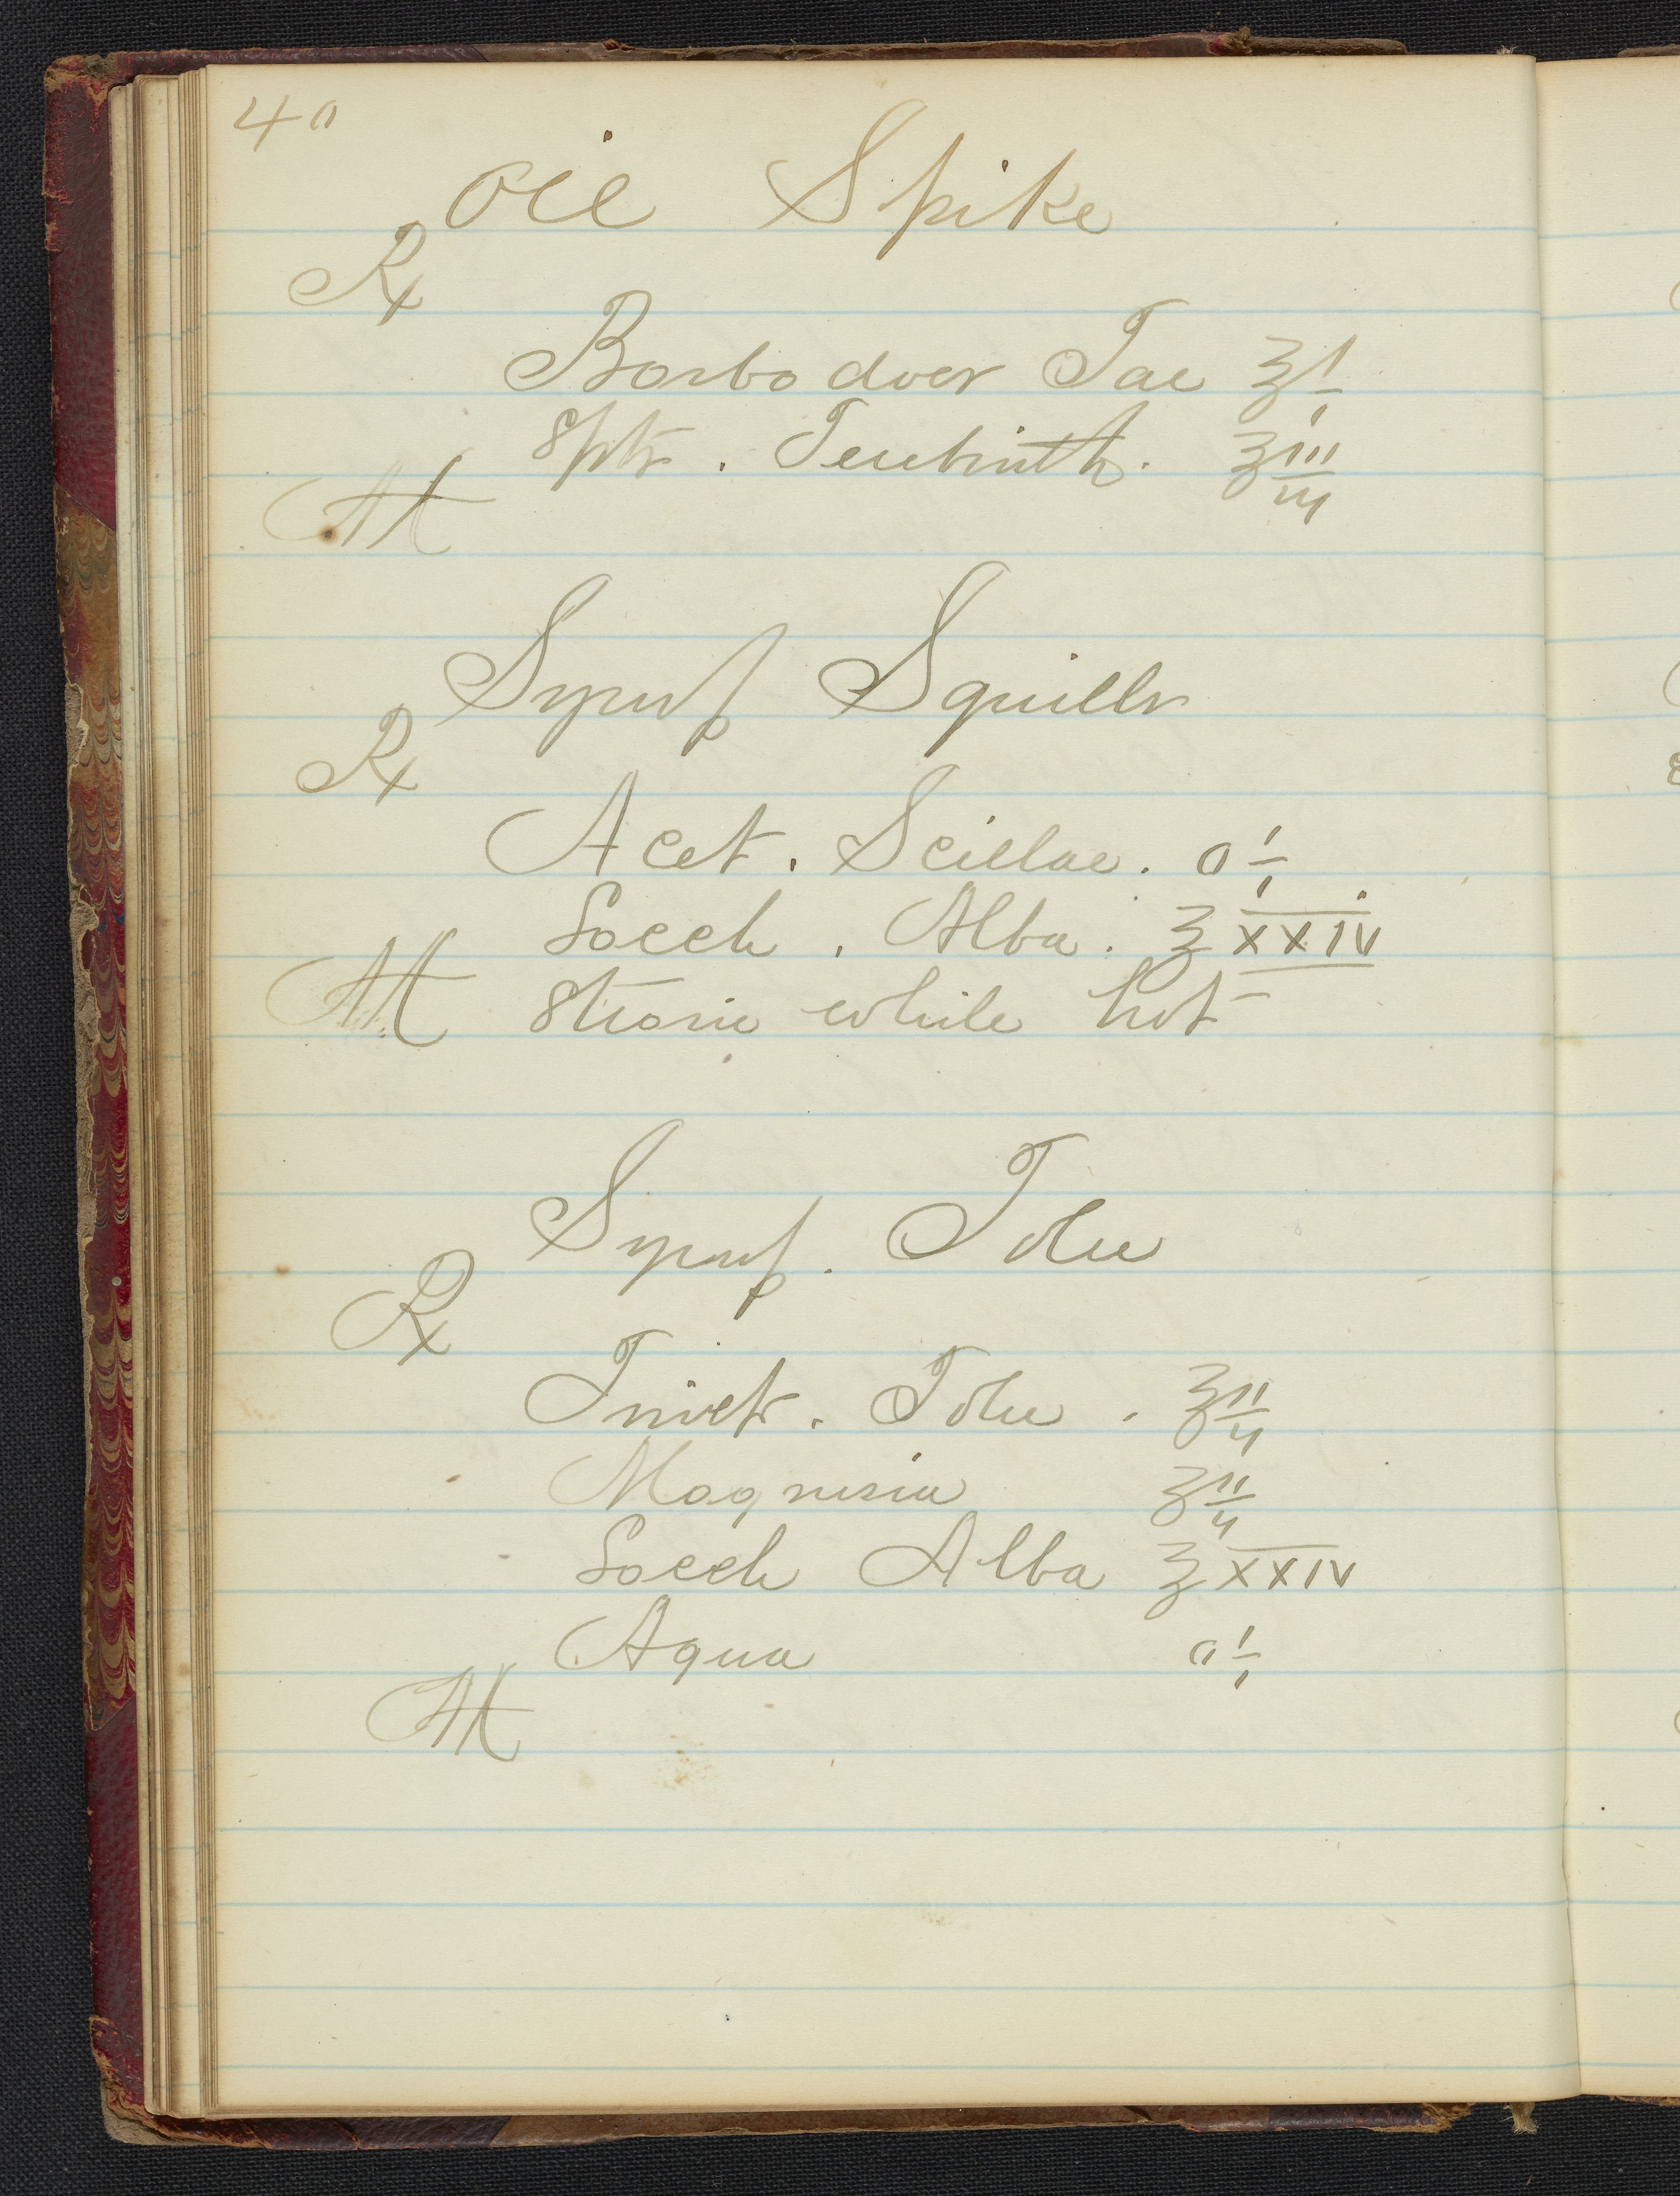 40
Oil Spike
℞
Barbadoer Tar ℥ i
Spts. Terebinth. ℥ iii
M
Syrup Squills
℞
Acet. Scillae. O i
Sacch. Alba. ℥ XXIV
M Strain while hot
Syrup. Tolu
℞
Tinct. Tolu. ℥ ii
Magnesia ℥ ii
Sacch Alba ℥ XXIV
Aqua O i
M